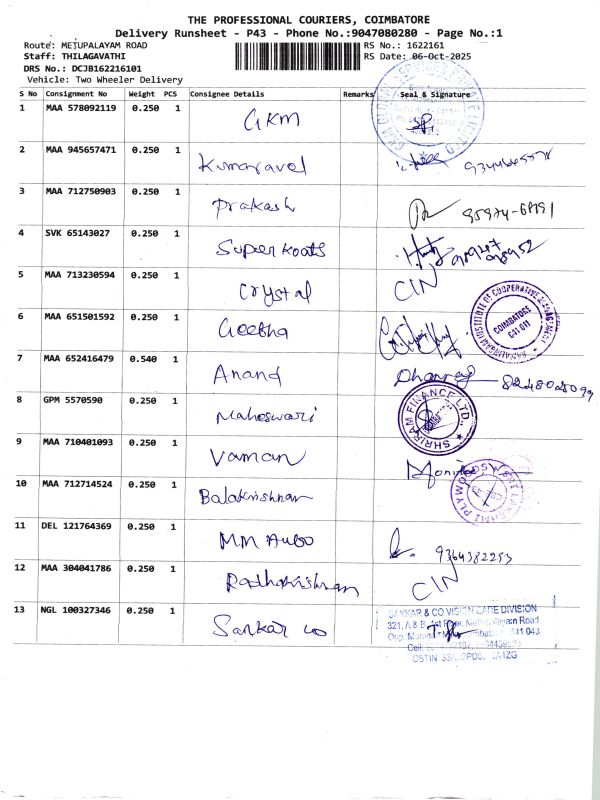 THE PROFESSIONAL COURIERS, COIMBATORE
Delivery Runsheet - P43 - Phone No.:9047080280 - Page No.:1
Route: METUPALAYAM ROAD RS No.: 1622161
Staff: THILAGAVATHI RS Date: 06-Oct-2025
DRS No.: DCJB162216101
Vehicle: Two Wheeler Delivery
S No Consignment No Weight PCS Consignee Details Remarks Seal & Signature
1 MAA 578092119 0.250 1 GKM
2 MAA 945657471 0.250 1 Kumaravel
3 MAA 712750903 0.250 1 Prakash
4 SVK 65143027 0.250 1 Super Koats
5 MAA 713230594 0.250 1 Crystal CIN
6 MAA 651501592 0.250 1 Geetha
COIMBATORE
641 011
7 MAA 652416479 0.540 1 Anand Dhanraj
8 GPM 5570590 0.250 1 Maheswari
SHRIRAM FINANCE LTD.,
9 MAA 710401093 0.250 1 Vaman
10 MAA 712714524 0.250 1 Balakrishnan
11 DEL 121764369 0.250 1 MM Auto 9364382253
12 MAA 304041786 0.250 1 Radhakrishnan CIN
13 NGL 100327346 0.250 1 Sankar co
SANKAR & CO VISION CARE DIVISION